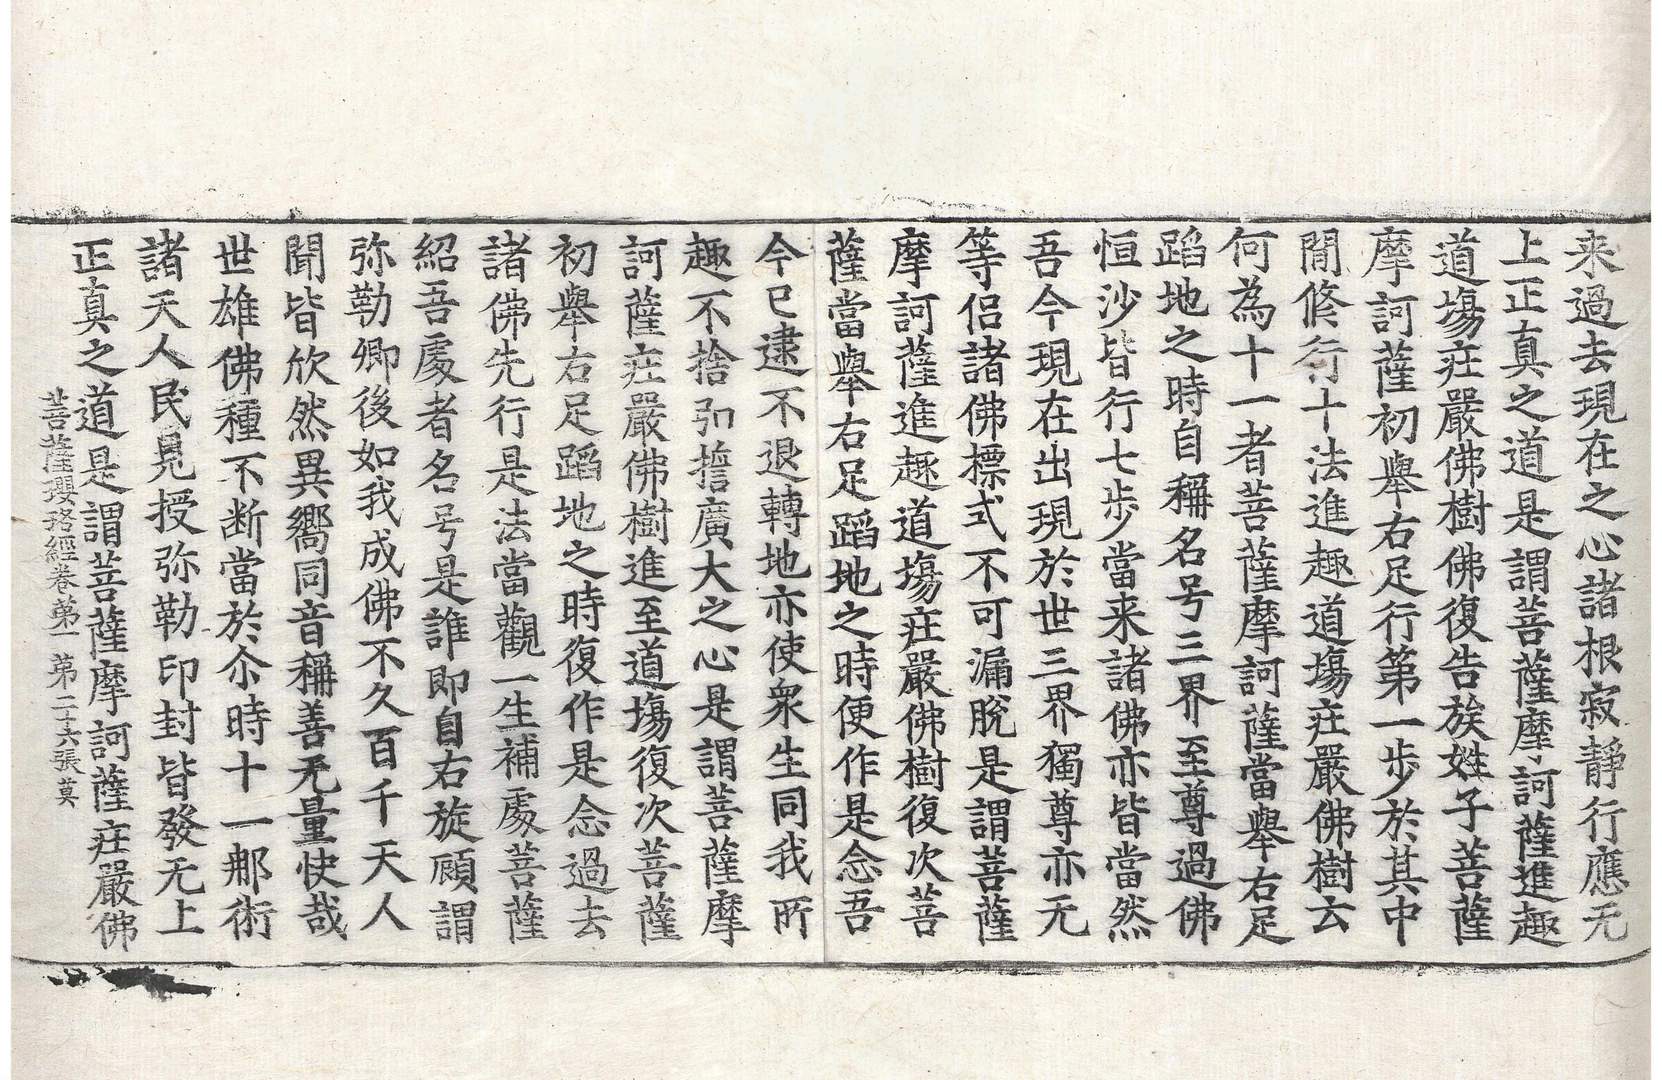 来過去現在之心諸根寂靜行應无
上正真之道是謂菩薩摩訶薩進趣
道塲庄嚴佛樹佛復告族姓子菩薩
摩訶薩初舉右足行第一步於其中
閒修行十法進趣道塲庄嚴佛樹云
何為十一者菩薩摩訶薩當舉右足
蹈地之時自稱名号三界至尊過佛
恒沙皆行七步當来諸佛亦皆當然
吾今現在出現於世三界獨尊亦无
等侣諸佛標式不可漏脫是謂菩薩
摩訶薩進趣道塲庄嚴佛樹復次菩
薩當舉右足蹈地之時便作是念吾
今已逮不退轉地亦使衆生同我所
趣不捨弘擔廣大之心是謂菩薩摩
訶薩庄嚴佛樹進至道塲復次菩薩
初舉右足蹈地之時復作是念過去
諸佛先行是法當觀一生補處菩薩
紹吾處者名号是誰即自右旋顧謂
弥勒卿後如我成佛不久百千天人
聞皆欣然異嚮同音稱善无量快哉
世雄佛種不断當於尒時十一那術
諸天人民見授弥勒印封皆發无上
正真之道是謂菩薩摩訶薩庄嚴佛
菩薩瓔珞經卷第一 第二十六張 莫